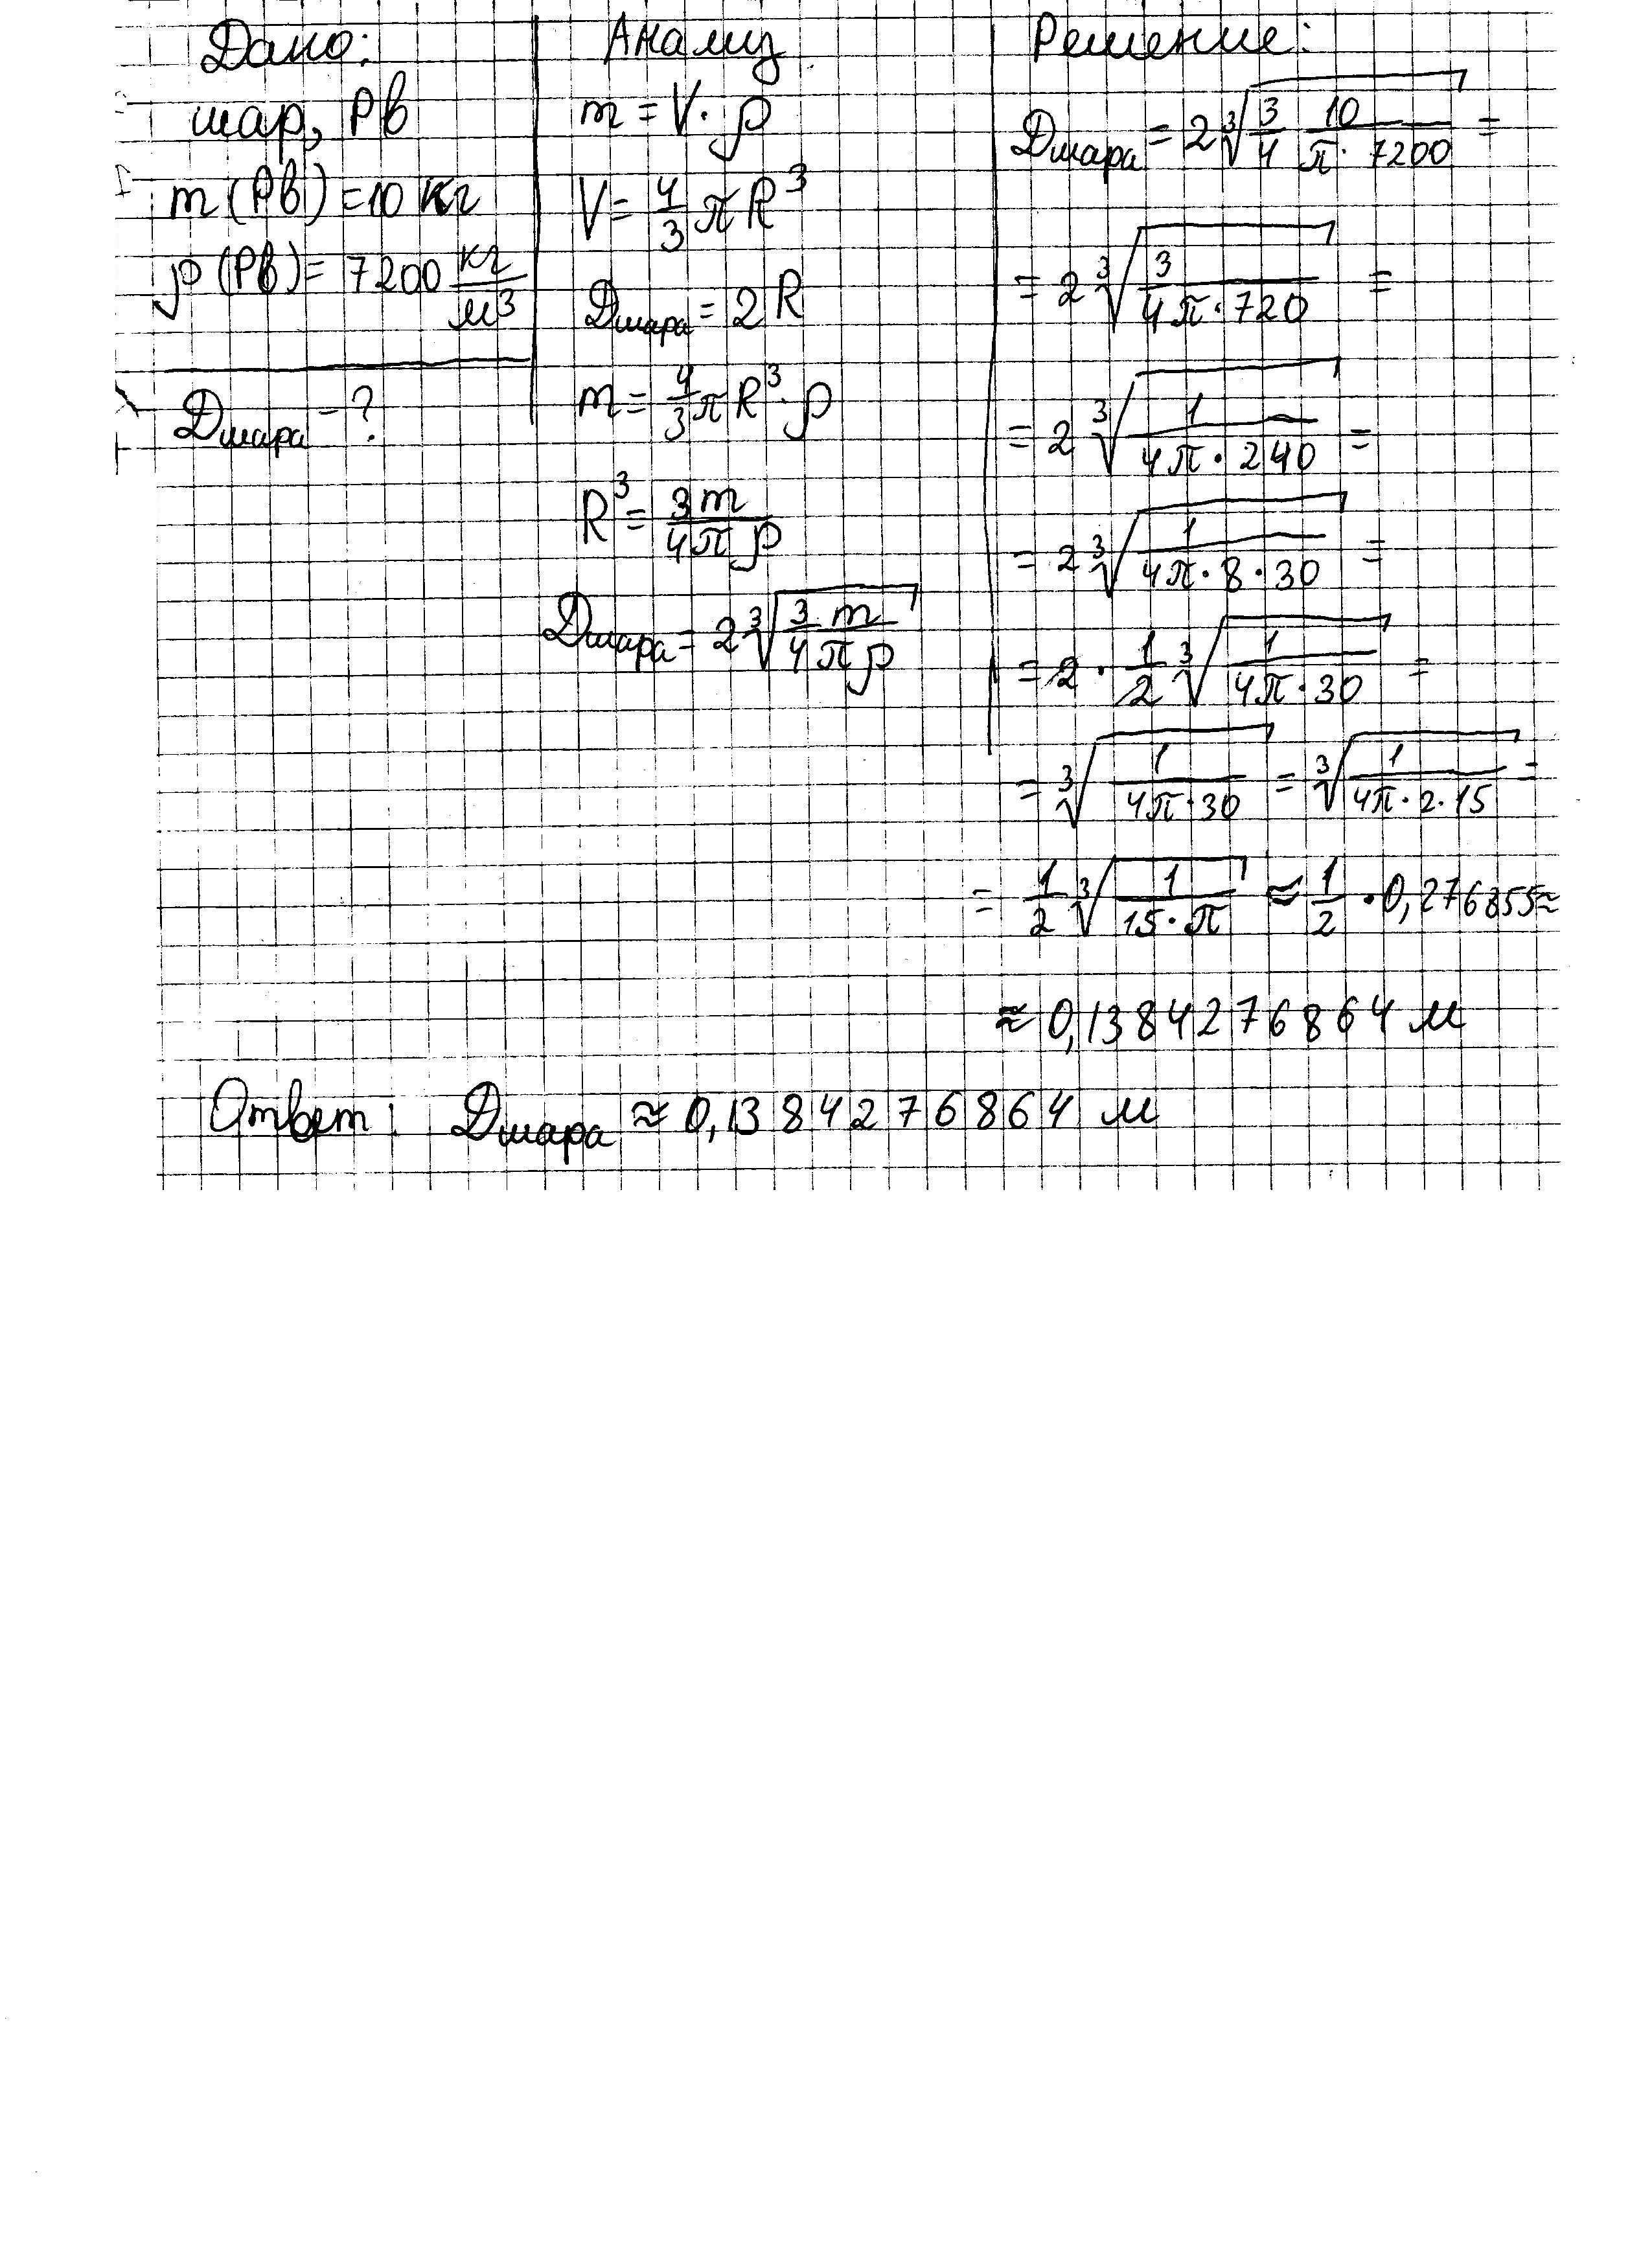 Дано:
шар, Pb
m(Pb)=10 кг
ρ(Pb)= 7200 кг/м³
Dшара - ?
Анализ
m = V · ρ
V = 4/3 π R³
Dшара = 2R
m = 4/3 π R³ · ρ
R³ = 3m/4πρ
Dшара = 2 ∛(3m/4πρ)
Решение:
Dшара = 2 ∛(3/4 10/π · 7200) =
= 2 ∛(3/4π · 720) =
= 2 ∛(1/4π · 240) =
= 2 ∛(1/4π · 8 · 30) =
= 2 · 1/2 ∛(1/4π · 30) =
= ∛(1/4π · 30) = ∛(1/4π · 2 · 15) =
= 1/2 ∛(1/15 · π) ≈ 1/2 · 0,276855 ≈
≈ 0,1384276864 м
Ответ: Dшара ≈ 0,1384276864 м